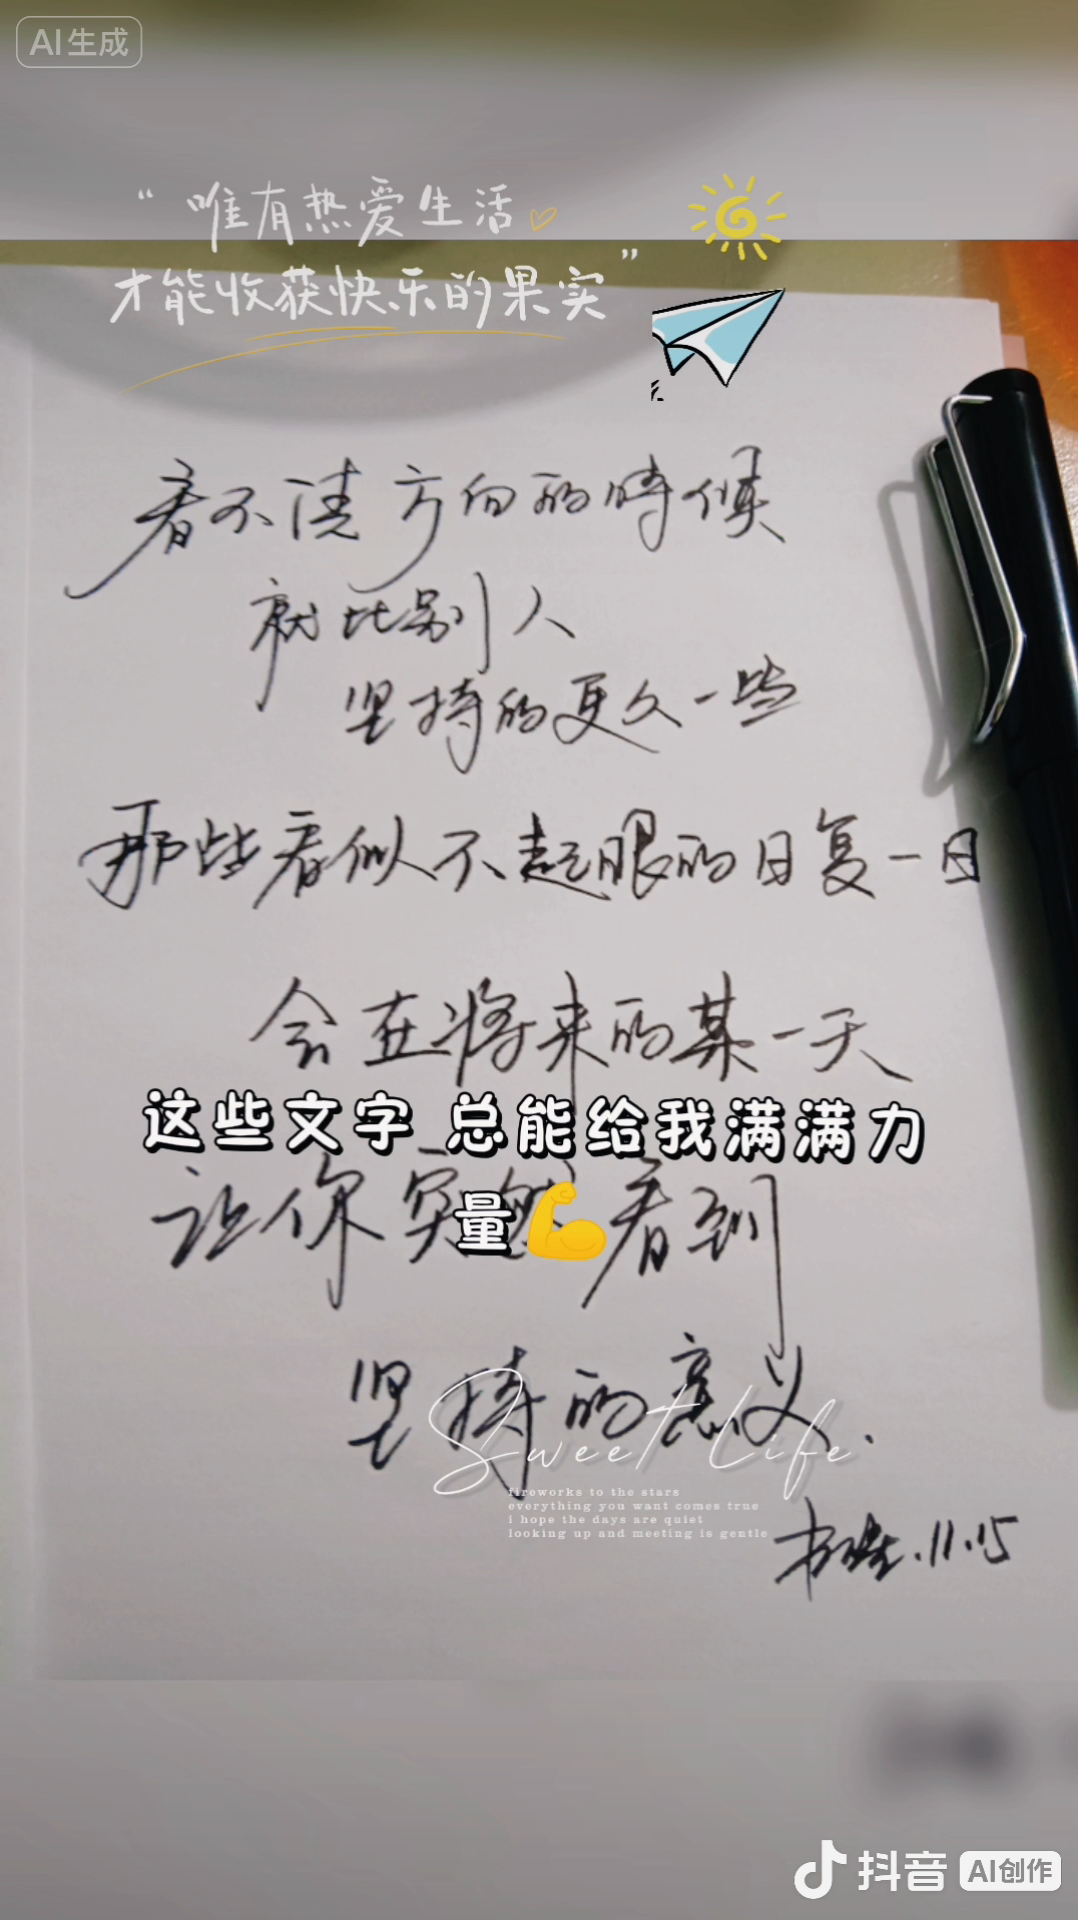 AI生成
“唯有热爱生活
才能收获快乐的果实”
看不清方向的時候
就比别人
坚持的更久一些
那些看似不起眼的日复一日
会在将来的某一天
这些文字 总能给我满满力
量💪
让你突然看到
坚持的意义.
Sweet Life
fireworks to the stars
everything you want comes true
i hope the days are quiet
looking up and meeting is gentle
.11.15
抖音 AI创作